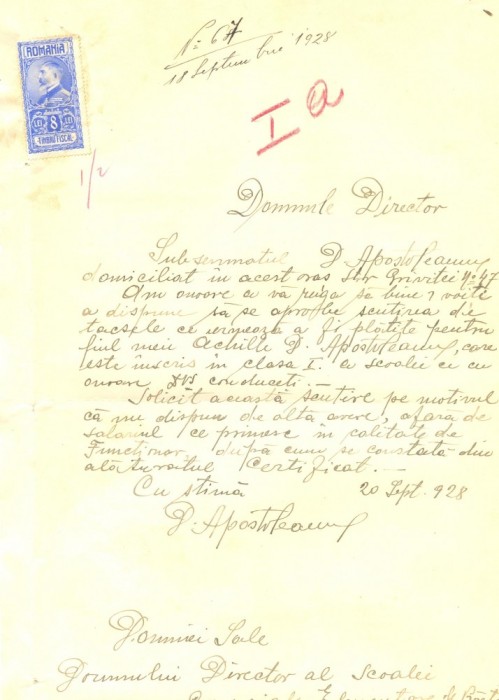 ROMANIA
LEI 8 LEI
TIMBRU FISCAL
No 67
18 Septembrie 1928
I a
1/2
Domnule Director
Subsemnatul D. Apostoleanu
domiciliat în acest oraș Str Griviței No 47
Am onoare a vă ruga să bine voiți
a dispune să se aprobe scutirea de
tacsele ce urmează a fi plătite pentru
fiul meu Achille D. Apostoleanu, care
este înscris în clasa I. a scoalei ce cu
onoare DVs conduceți.
Solicit această scutire pe motivul
că nu dispun de altă avere, afară de
salariul ce primesc în calitate de
Funcționar, după cum se constată din
alăturatul Certificat.—
Cu stimă 20 Sept. 928
D. Apostoleanu
Domniei Sale
Domnului Director al Scoalei